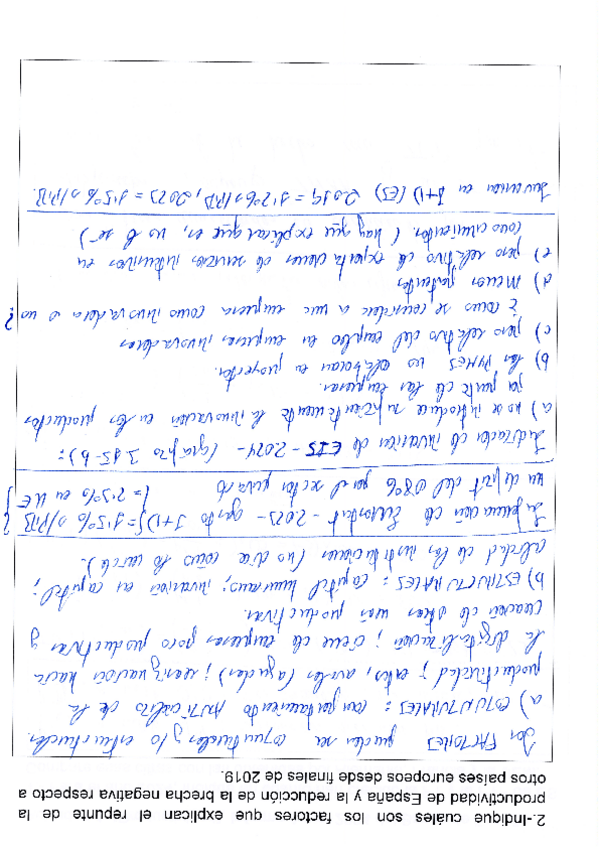 2.-Indique cuáles son los factores que explican el repunte de la
productividad de España y la reducción de la brecha negativa respecto a
otros países europeos desde finales de 2019.
Los FACTORES pueden ser coyunturales y/o estructurales.
a) COYUNTURALES: comportamiento ANTICÍCLICO de la
productividad; ertes, avales, (ayudas); reasignación hacia
la digitalización; cierre de empresas poco productivas y
creación de otras más productivas.
b) ESTRUCTURALES: capital humano; inversión en capital;
calidad de las instituciones (no dice como lo mide).
Información de Eurostat - 2023 - gasto I+D = 1'5% s/PIB
un depart del 0'8% por el sector privado = 2'2% en UE
Indicador de inversión de EIS - 2024 - (gráfico 3.15-b):
a) no se introduce suficientemente la innovación en los productos
por parte de las empresas.
b) las PYMES no colaboran en proyectos.
c) peso relativo del empleo en empresas innovadoras
¿ cómo se considera a una empresa como innovadora o no?
d) menos patentes
e) peso relativo de exportaciones de servicios intensivos en
conocimientos. (hay que explicar que es, no lo se)
Inversión en I+D (ES) 2019 = 1'2% s/PIB, 2023 = 1'5% s/PIB.